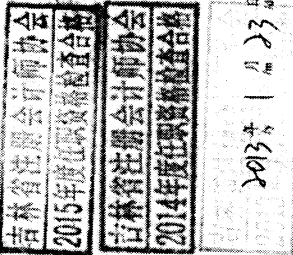 吉林省注册会计师协会
2015年度任职资格检查合格
吉林省注册会计师协会
2014年度任职资格检查合格
2013年1月23日